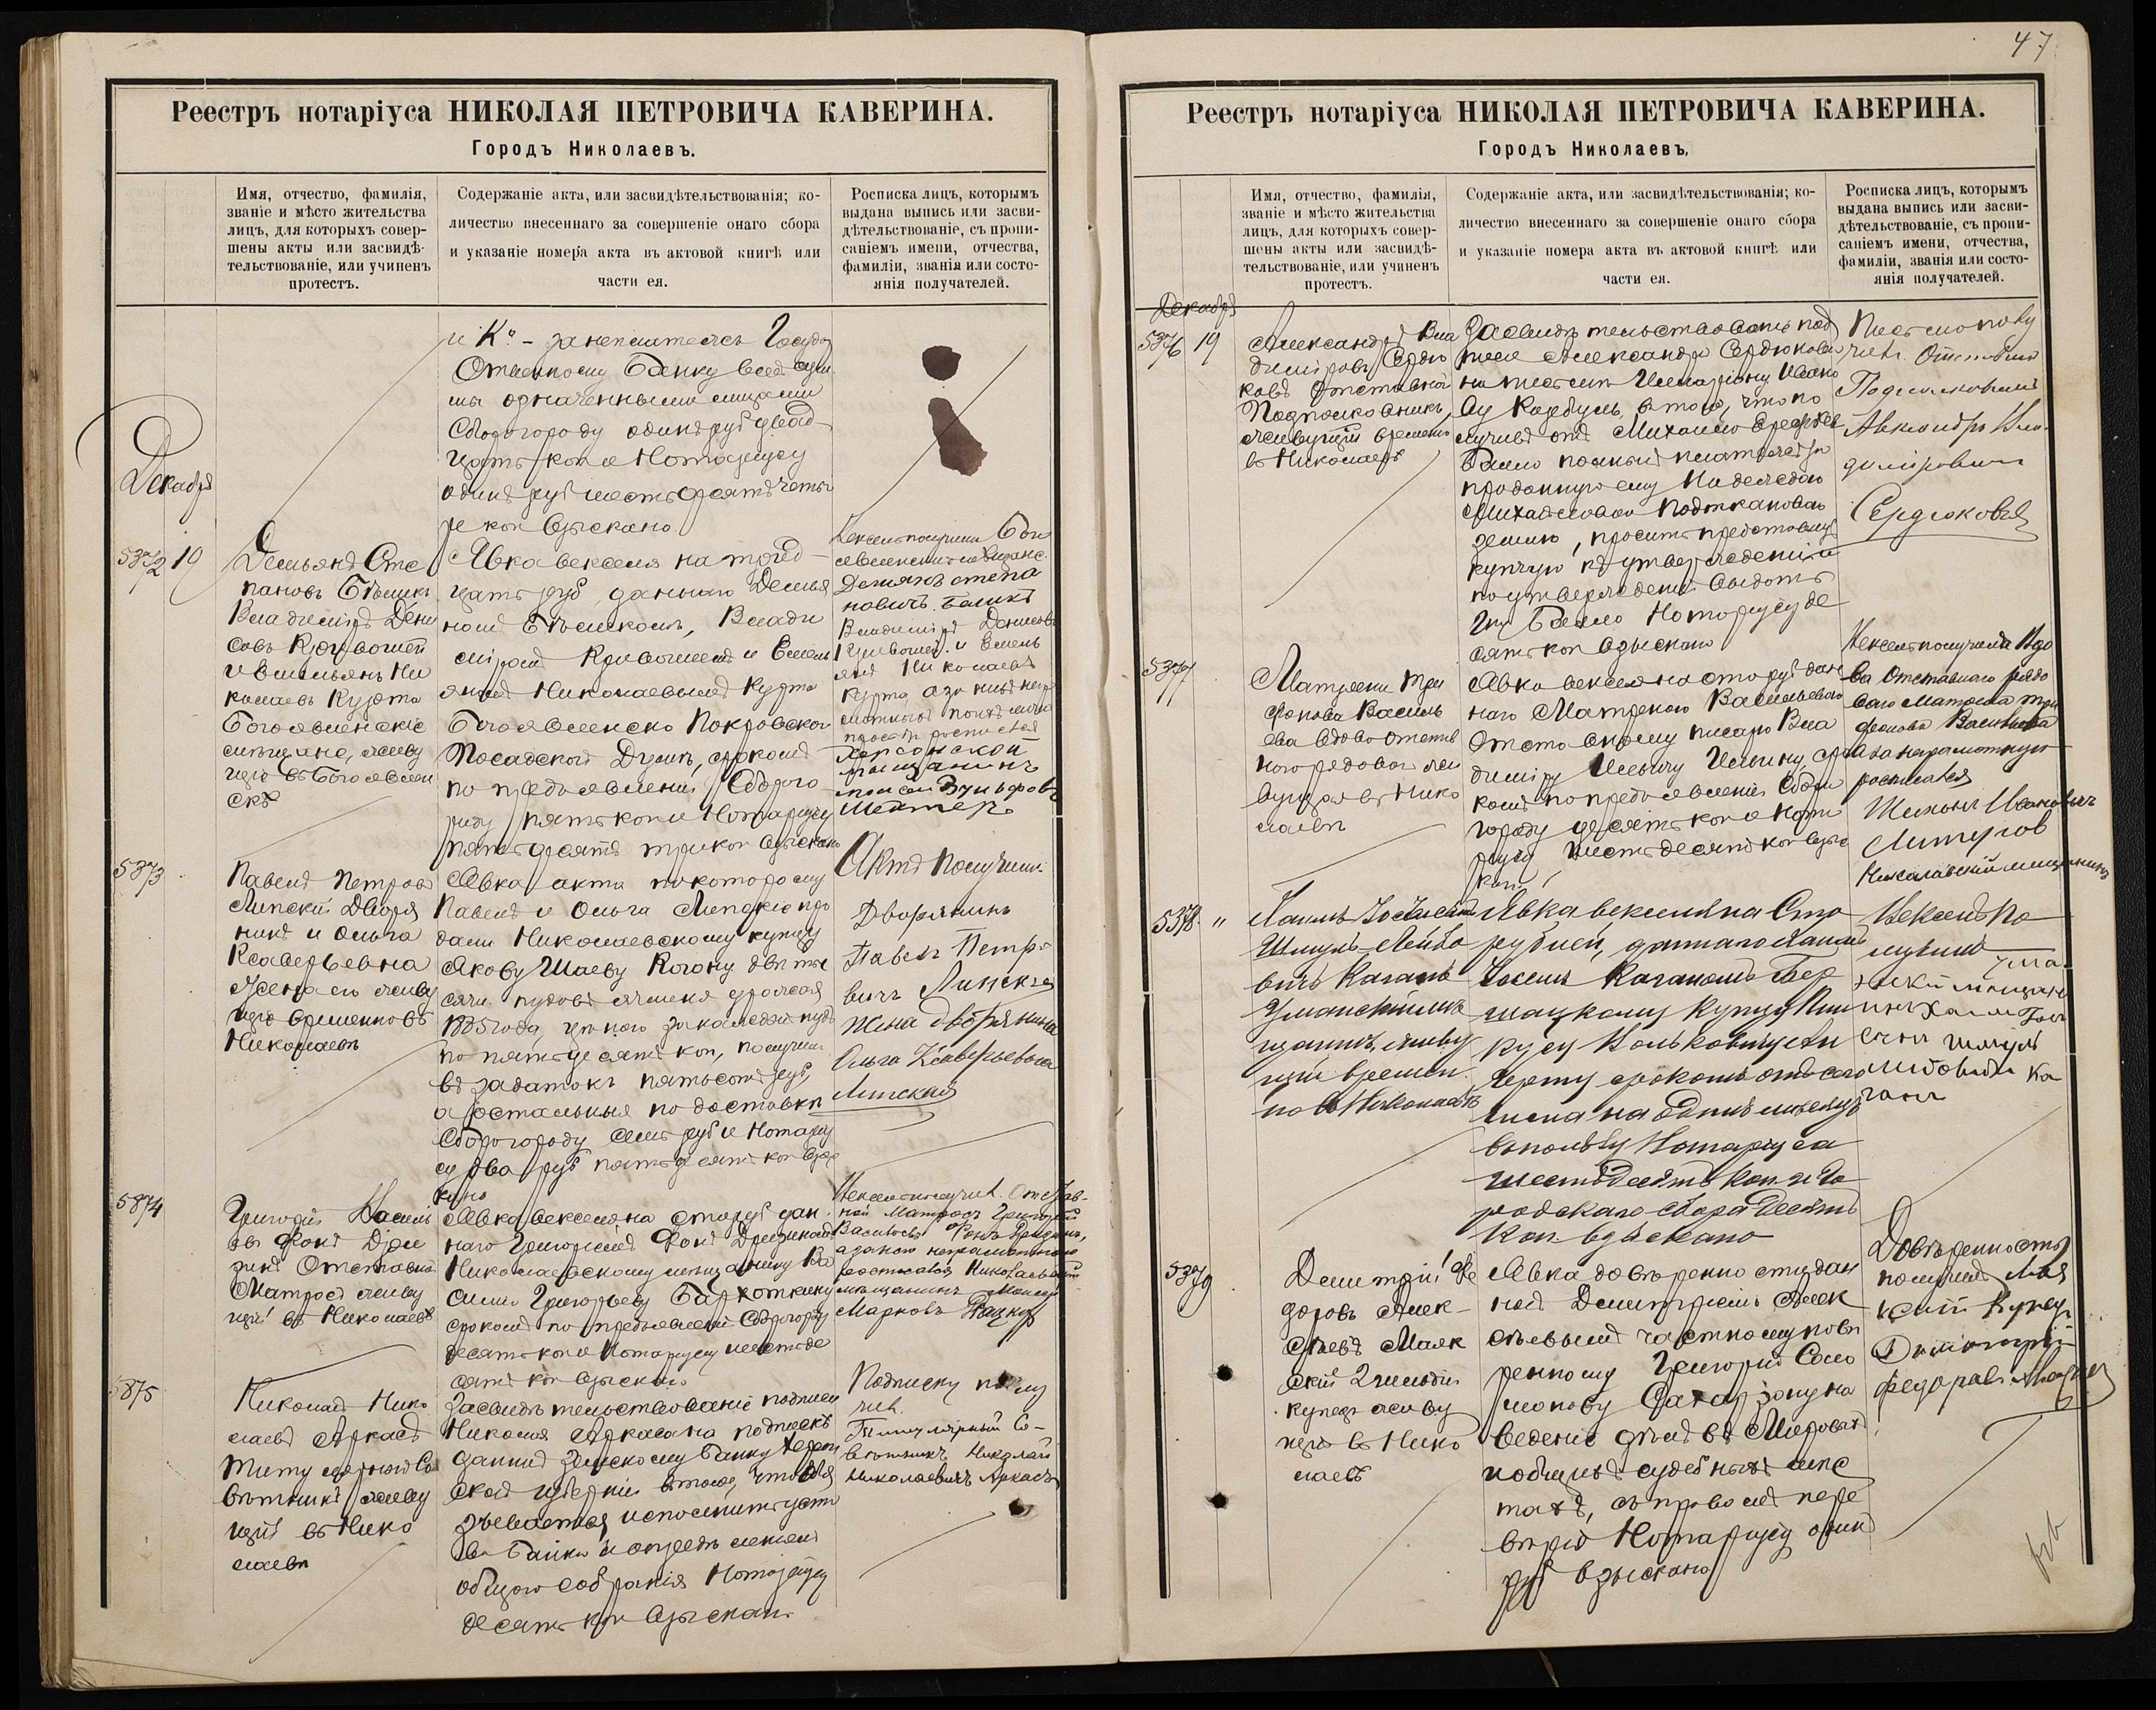 Реестръ нотаріуса НИКОЛАЯ ПЕТРОВИЧА КАВЕРИНА.
Городъ Николаевъ.
Имя, отчество, фамилія,
званіе и мѣсто жительства
лицъ, для которыхъ совер-
шены акты или засвидѣ-
тельствованіе, или учиненъ
протестъ.
Содержаніе акта, или засвидѣтельствованія; ко-
личество внесеннаго за совершеніе онаго сбора
и указаніе номера акта въ актовой книгѣ или
части ея.
Росписка лицъ, которымъ
выдана выпись или засви-
дѣтельствованіе, съ пропи-
саніемъ имени, отчества,
фамиліи, званія или состо-
янія получателей.
и К° - за неплатежъ Государ
ственному Банку всей сум
мы означенными лицами
Сборъ городу одинъ руб двад
цать коп и Нотаріусу
одинъ руб шестьдесятъ четы
ре коп взыскано
Декабря
5372 19
Демьянъ Сте
пановъ Бѣлике
Владиміръ Дени
совъ Кривошей
и Емельянъ Ни
колаевъ Курта
Богоявленскіе
мѣщане, живу
щіе въ Богоявлен
скѣ
Явка векселя на тридь
цать руб даннаго Демья
номъ Бѣликомъ, Влади
міромъ Кривошеемъ и Емель
яномъ Николаевымъ Курта
Богоявленско Покровской
Посадской Думѣ, срокомъ
по предъявленіи Сборъ го
роду пять коп и Нотаріусу
пятьдесятъ три коп взыскано
Вексель получили Бого
явленскіе мѣщане
Демянъ степа
новичъ Баликъ
Владиміръ Денисовъ
Кривошей и Емель
янъ Николаевъ
Курта, а за нихъ негра
мотныхъ по ихъ личной
просьбѣ росписался
Херсонской
мѣщанинъ
Шехтеръ
5373
Павелъ Петровъ
Липскій Дворя
нинъ и Ольга
Ксаверьевна
Жена его живу
щіе временно въ
Николаевѣ
Явка акта по которому
Павелъ и Ольга Липскіе про
дали Николаевскому купцу
Якову Шаеву Когону двѣ ты
сячи пудовъ ячменя урожая
1885 года, цѣною за каждый пудъ
по пятьдесятъ коп, получивъ
въ задатокъ пятьсотъ руб,
а остальныя по доставкѣ
Сборъ городу семь руб и Нотаріу
су два руб пятьдесятъ коп взыс
кано
Актъ получили.
Дворянинъ
Павелъ Петро
вичъ Липскій
жена дворянина
Ольга Ксаверьевна
Липская
5374
Григорій Василь
евъ Фонъ Дре
зинъ Отставной
Матросъ живу
щій въ Николаевѣ
Явка векселя на сто руб дан
наго Григоріемъ Фонъ Дрезиномъ
Николаевскому мѣщанину Ва
силію Григорьеву Бархоткину
срокомъ по предъявленіи Сборъ городу
десять коп и Нотаріусу шестьде
сятъ коп взыскано
Вексель получилъ Отстав-
ной Матросъ Григорій
Васильевъ Фонъ Дрезинъ,
а за него неграмотнаго
росписался Николаевскій
мѣщанинъ
Марковъ
5375
Николай Нико
лаевъ Аркасъ
Титулярный Со
вѣтникъ живу
щій въ Нико
лаевѣ
Засвидѣтельствованіе подписи
Николая Аркаса на подпискѣ
данной Земскому Банку Херсон
ской губерніи въ томъ, что обя
зывается исполнить уставъ
Банка и опредѣленіемъ
общаго собранія Нотаріусу
десять коп взыскано.
Подписку полу
чилъ.
Титулярный Со-
вѣтникъ Николай
Николаевичъ Аркасъ
47
Реестръ нотаріуса НИКОЛАЯ ПЕТРОВИЧА КАВЕРИНА.
Городъ Николаевъ.
Имя, отчество, фамилія,
званіе и мѣсто жительства
лицъ, для которыхъ совер-
шены акты или засвидѣ-
тельствованіе, или учиненъ
протестъ.
Содержаніе акта, или засвидѣтельствованія; ко-
личество внесеннаго за совершеніе онаго сбора
и указаніе номера акта въ актовой книгѣ или
части ея.
Росписка лицъ, которымъ
выдана выпись или засви-
дѣтельствованіе, съ пропи-
саніемъ имени, отчества,
фамиліи, званія или состо-
янія получателей.
Декабря
5376 19
Александръ Вла
диміровъ Сердю
ковъ Отставной
Подполковникъ,
живущій временно
въ Николаевѣ
Засвидѣтельствованіе под
писи Александра Сердюкова
на письмѣ Илларіону Ивано
ву Карбуль, въ томъ, что по
лучивъ отъ Михаила
полный платежъ за
проданную ему Надеждою
Михайловою
землю, проситъ представить
купчую къ утвержденію и
по утвержденіи выдать
Нотаріусу де
сять коп взыскано
Письмо полу
чилъ. Отставной
Подполковникъ
Александръ Вла-
диміровичъ
Сердюковъ
5377
Матрена Три
фонова Василь
ева вдова отстав
ного рядового жи
вущая въ Нико
лаевѣ
Явка векселя на сто руб дан
наго Матреною Васильевою
Отставному писарю Вла
диміру Ильичу Ильину, сро
комъ по предъявленіи Сборъ
городу десять коп и Нота
ріусу шестьдесятъ коп взыс
кано
Вексель получила Вдо
ва Отставнаго рядо
ваго Матрена Три
фонова Васильева
а за неграмотную
росписался
Ивановичъ
Николаевскій мѣщанинъ
5378 "
Хаимъ Іосель
Шмуль-Лейбо
вичъ Каганъ
Уманскій мѣ
щанинъ, живу
щій времен
но въ Николаевѣ
Явка векселя на Сто
рублей, даннаго Хаимъ
Іосель Каганомъ Бер
шацкому купцу Пин
кусу
срокомъ отъ сего
числа на одинъ мѣсяцъ
въ пользу Нотаріуса
шестьдесятъ коп. и Го
родскаго сбора десять
коп. взыскано
Вексель по
лучилъ
Ума
нскій мѣщан
инъ Хаим Іос
ель Шмуль
Лейбовичъ Ка
ганъ
5379
Дмитрій Фе
доровъ Алек-
сѣевъ Маяк
скій 2 гильдіи
купецъ живу
щій въ Нико
лаевѣ
Явка довѣренности дан
ной Дмитріемъ Алек
сѣевымъ частному повѣ
ренному Григорію Соло
монову Сахарзону на
веденіе дѣлъ въ Мировыхъ
и общихъ судебныхъ мѣс
тахъ, съ правомъ пере
вѣрія Нотаріусу одинъ
руб взыскано
Довѣренность
получилъ Мая
кскій Купецъ
Дмитрій
Федоровъ Алексѣев